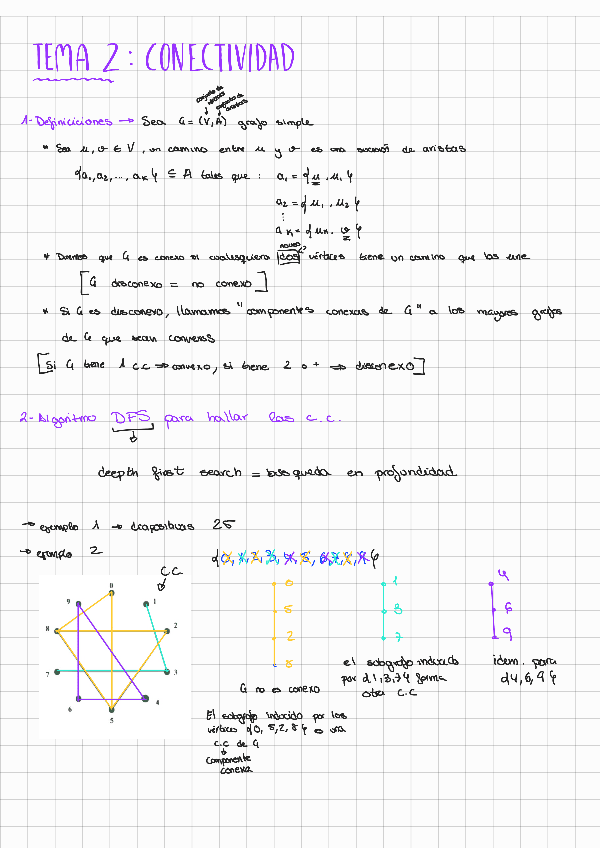 TEMA 2: CONECTIVIDAD
conjunto de vértices
conjunto de aristas
1- Definiciciones → Sea G = (V, A) grafo simple
* Sea u, v ∈ V, un camino entre u y v es una sucesión de aristas
{a1, a2, ..., aK} ⊆ A tales que : a1 = {u, u1}
a2 = {u1, u2}
⋮
aK = {uK, v}
* Diremos que G es conexo si cualesquiera dos vértices tiene un camino que los une
[G disconexo = no conexo]
* Si G es disconexo, llamamos "componentes conexas de G" a los mayores grafos
de G que sean conexos
[Si G tiene 1 c.c ⇒ conexo, si tiene 2 o + ⇒ disconexo]
2- Algoritmo DFS para hallar las c.c.
deepth first search = busqueda en profundidad
→ ejemplo 1 → diapositivas 25
→ ejemplo 2 {0, 1, 2, 3, 4, 5, 6, 7, 8, 9}
C.C
0
1
2
3
4
5
6
7
8
9
0
5
2
8
1
3
7
4
6
9
G no es conexo
El subgrafo inducido por los
vértices {0, 5, 2, 8} es una
c.c de G
componente
conexa
el subgrafo inducido
por {1, 3, 7} forma
otra c.c
idem. para
{4, 6, 9}